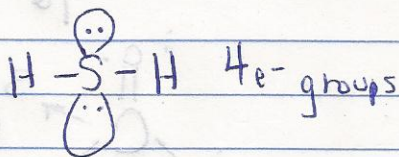 H-S-H 4e- groups